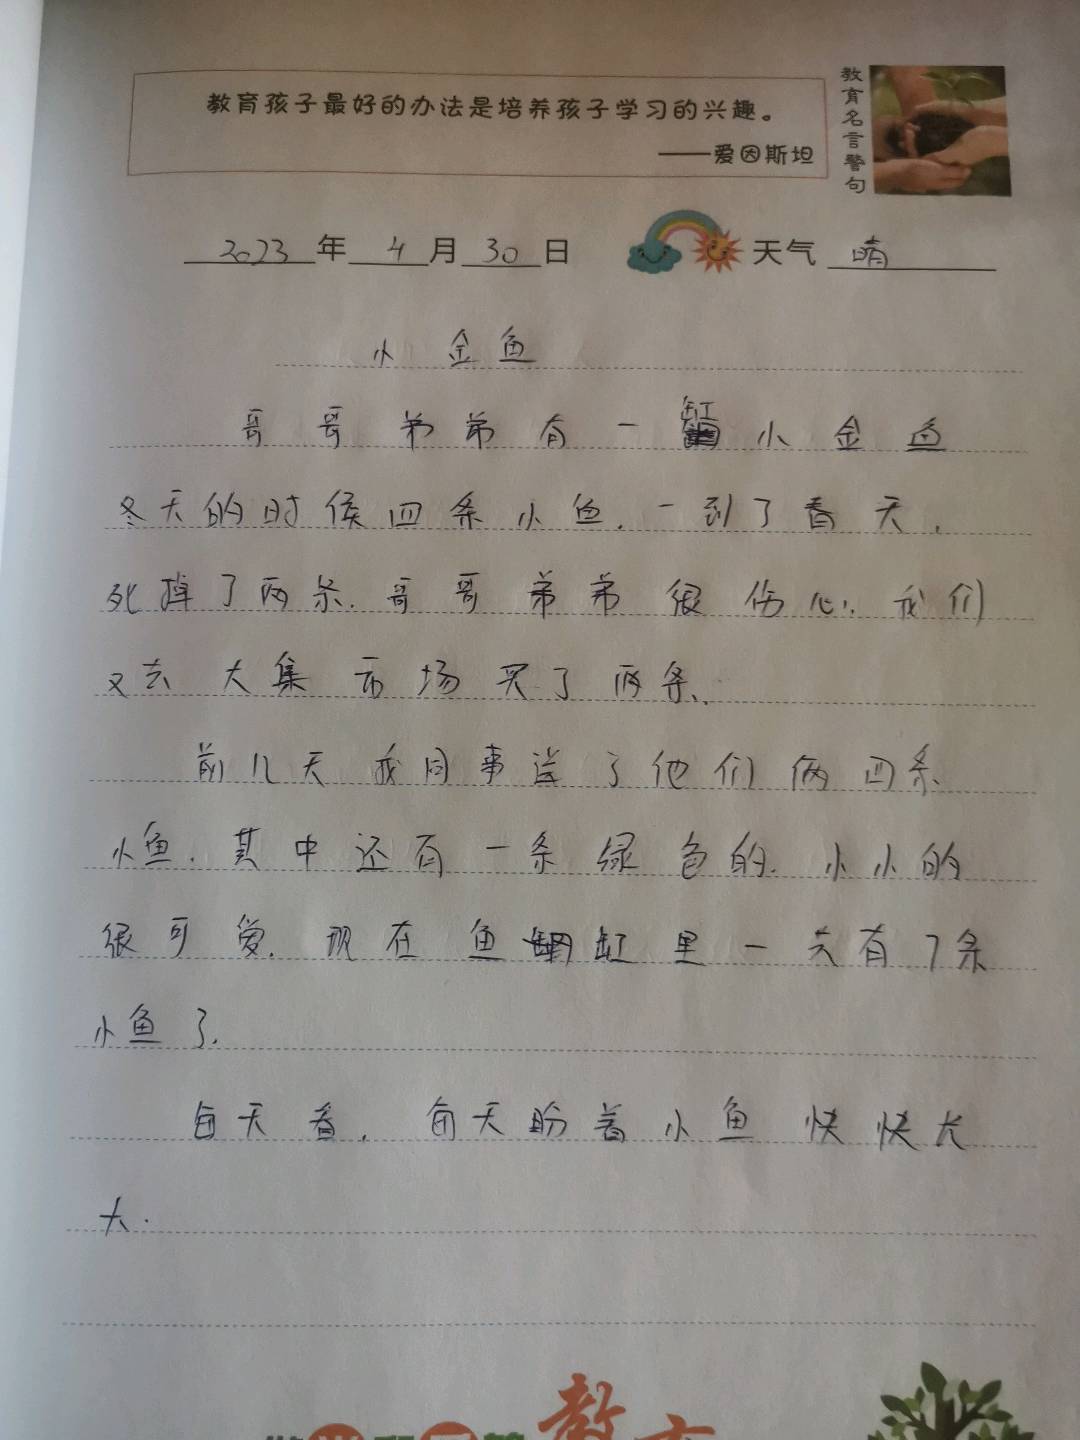 教育孩子最好的办法是培养孩子学习的兴趣。
——爱因斯坦
教育名言警句
2023年4月30日 天气 晴
小金鱼
哥哥弟弟有一缸小金鱼
冬天的时候四条小鱼.一到了春天,
死掉了两条.哥哥弟弟很伤心.我们
又去大集市场买了两条.
前几天我同事送了他们俩四条
小鱼.其中还有一条绿色的.小小的
很可爱.现在鱼缸里一共有7条
小鱼了.
每天看,每天盼着小鱼快快长
大.
教育